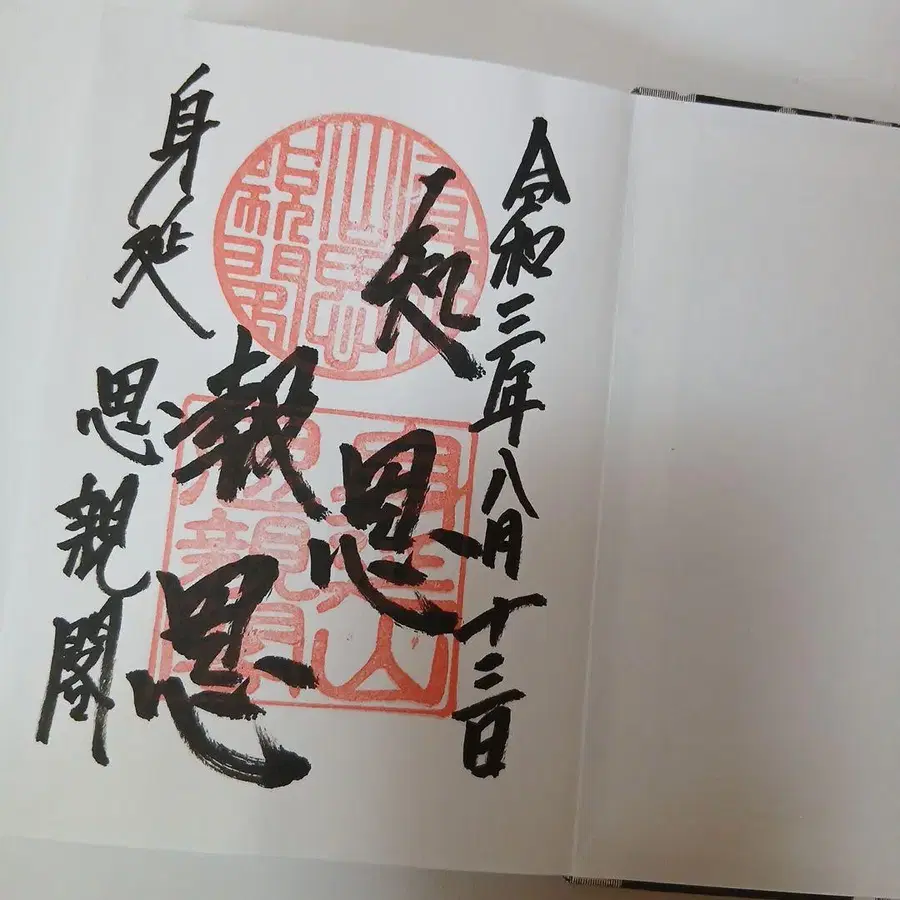 令和三年八月十三日
知恩
報恩
身延 思親閣
身延山
思親閣
身延
山思
親閣